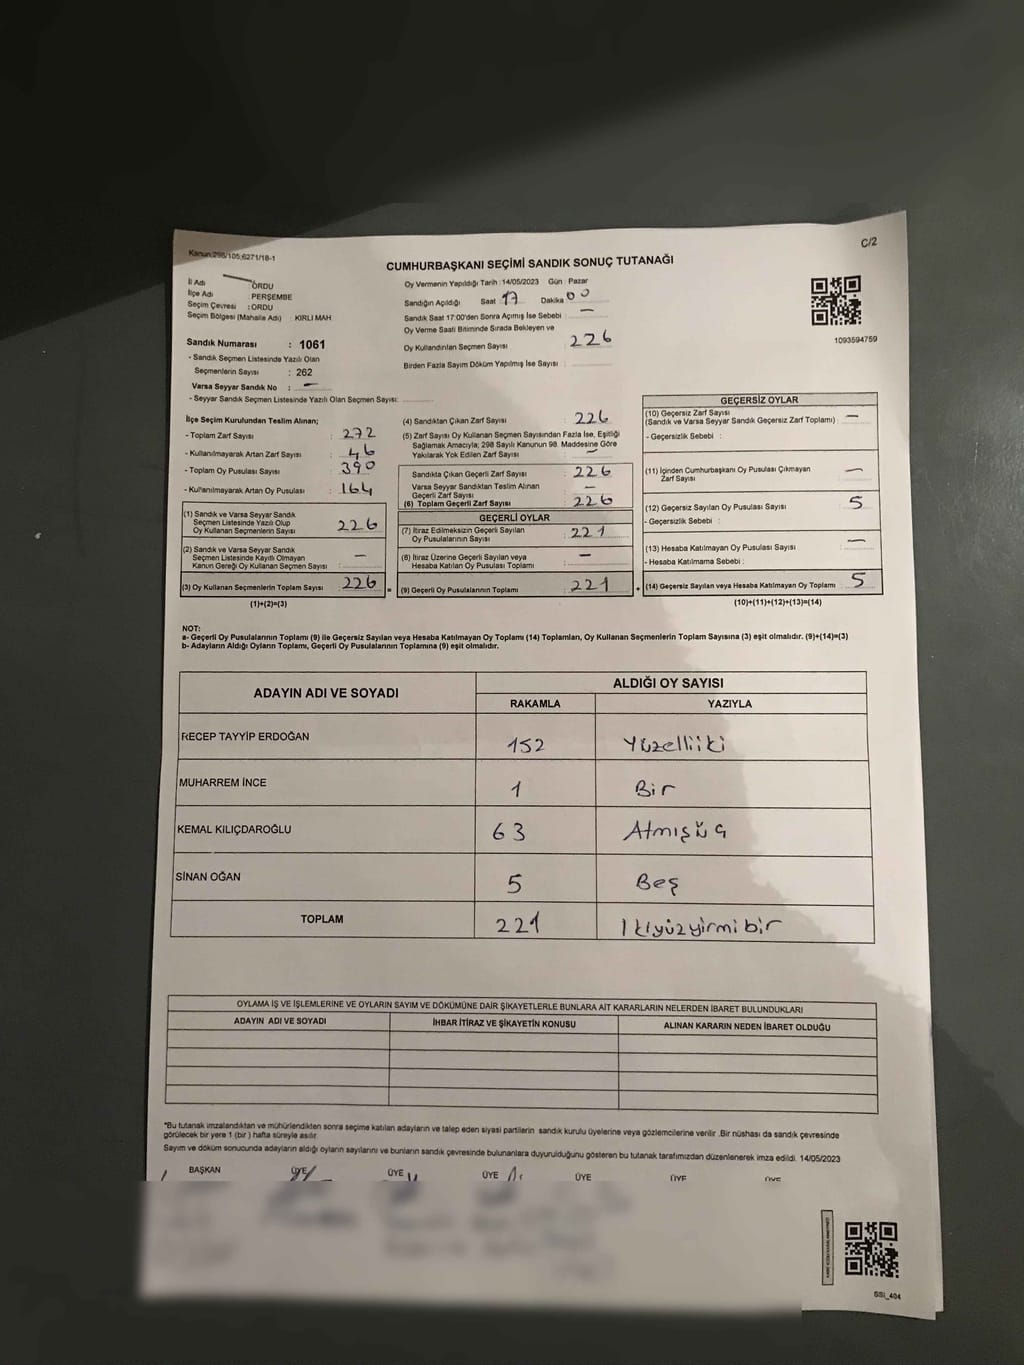 Kanun:298/105,6271/18-1
C/2
CUMHURBAŞKANI SEÇİMİ SANDIK SONUÇ TUTANAĞI
İl Adı : ORDU
İlçe Adı : PERŞEMBE
Seçim Çevresi : ORDU
Seçim Bölgesi (Mahalle Adı) : KIRLI MAH.
Sandık Numarası : 1061
- Sandık Seçmen Listesinde Yazılı Olan
Seçmenlerin Sayısı : 262
Varsa Seyyar Sandık No : —
- Seyyar Sandık Seçmen Listesinde Yazılı Olan Seçmen Sayısı:
Oy Vermenin Yapıldığı Tarih :14/05/2023 Gün : Pazar
Sandığın Açıldığı Saat 17 Dakika 00
Sandık Saat 17:00'den Sonra Açımış İse Sebebi : —
Oy Verme Saati Bitiminde Sırada Bekleyen ve
Oy Kullandırılan Seçmen Sayısı : 226
Birden Fazla Sayım Döküm Yapılmış İse Sayısı :
1093594759
İlçe Seçim Kurulundan Teslim Alınan;
- Toplam Zarf Sayısı : 272
- Kullanılmayarak Artan Zarf Sayısı : 46
- Toplam Oy Pusulası Sayısı : 390
- Kullanılmayarak Artan Oy Pusulası : 164
(1) Sandık ve Varsa Seyyar Sandık
Seçmen Listesinde Yazılı Olup
Oy Kullanan Seçmenlerin Sayısı : 226
(2) Sandık ve Varsa Seyyar Sandık
Seçmen Listesinde Kayıtlı Olmayan
Kanun Gereği Oy Kullanan Seçmen Sayısı : —
(3) Oy Kullanan Seçmenlerin Toplam Sayısı : 226
(1)+(2)=(3)
(4) Sandıktan Çıkan Zarf Sayısı : 226
(5) Zarf Sayısı Oy Kullanan Seçmen Sayısından Fazla İse, Eşitliği
Sağlamak Amacıyla; 298 Sayılı Kanunun 98. Maddesine Göre
Yakılarak Yok Edilen Zarf Sayısı : —
Sandıkta Çıkan Geçerli Zarf Sayısı : 226
Varsa Seyyar Sandıktan Teslim Alınan
Geçerli Zarf Sayısı : —
(6) Toplam Geçerli Zarf Sayısı : 226
GEÇERLİ OYLAR
(7) İtiraz Edilmeksizin Geçerli Sayılan
Oy Pusulalarının Sayısı : 221
(8) İtiraz Üzerine Geçerli Sayılan veya
Hesaba Katılan Oy Pusulası Toplamı : —
(9) Geçerli Oy Pusulalarının Toplamı : 221
GEÇERSİZ OYLAR
(10) Geçersiz Zarf Sayısı
(Sandık ve Varsa Seyyar Sandık Geçersiz Zarf Toplamı) : —
- Geçersizlik Sebebi :
(11) İçinden Cumhurbaşkanı Oy Pusulası Çıkmayan
Zarf Sayısı : —
(12) Geçersiz Sayılan Oy Pusulası Sayısı : 5
- Geçersizlik Sebebi :
(13) Hesaba Katılmayan Oy Pusulası Sayısı : —
- Hesaba Katılmama Sebebi :
(14) Geçersiz Sayılan veya Hesaba Katılmayan Oy Toplamı : 5
(10)+(11)+(12)+(13)=(14)
NOT:
a- Geçerli Oy Pusulalarının Toplamı (9) ile Geçersiz Sayılan veya Hesaba Katılmayan Oy Toplamı (14) Toplamları, Oy Kullanan Seçmenlerin Toplam Sayısına (3) eşit olmalıdır. (9)+(14)=(3)
b- Adayların Aldığı Oyların Toplamı, Geçerli Oy Pusulalarının Toplamına (9) eşit olmalıdır.
ADAYIN ADI VE SOYADI
ALDIĞI OY SAYISI
RAKAMLA YAZIYLA
RECEP TAYYİP ERDOĞAN 152 Yüzelliiki
MUHARREM İNCE 1 Bir
KEMAL KILIÇDAROĞLU 63 Atmışüç
SİNAN OĞAN 5 Beş
TOPLAM 221 İkiyüzyirmibir
OYLAMA İŞ VE İŞLEMLERİNE VE OYLARIN SAYIM VE DÖKÜMÜNE DAİR ŞİKAYETLERLE BUNLARA AİT KARARLARIN NELERDEN İBARET BULUNDUKLARI
ADAYIN ADI VE SOYADI İHBAR İTİRAZ VE ŞİKAYETİN KONUSU ALINAN KARARIN NEDEN İBARET OLDUĞU
*Bu tutanak imzalandıktan ve mühürlendikten sonra seçime katılan adayların ve talep eden siyasi partilerin sandık kurulu üyelerine veya gözlemcilerine verilir .Bir nüshası da sandık çevresinde
görülecek bir yere 1 (bir ) hafta süreyle asılır.
Sayım ve döküm sonucunda adayların aldığı oyların sayılarını ve bunların sandık çevresinde bulunanlara duyurulduğunu gösteren bu tutanak tarafımızdan düzenlenerek imza edildi. 14/05/2023
BAŞKAN ÜYE ÜYE ÜYE ÜYE ÜYE ÜYE
SSİ_404